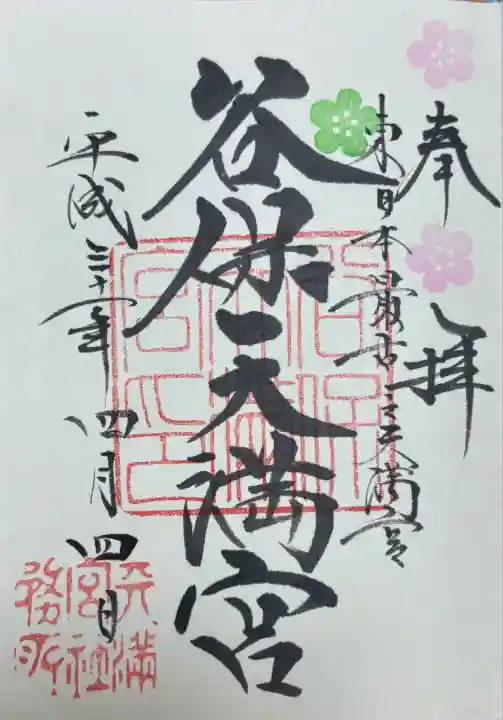 奉拝
東日本最古之天満宮
谷保天満宮
平成三十一年四月四日
天満
宮社
務所